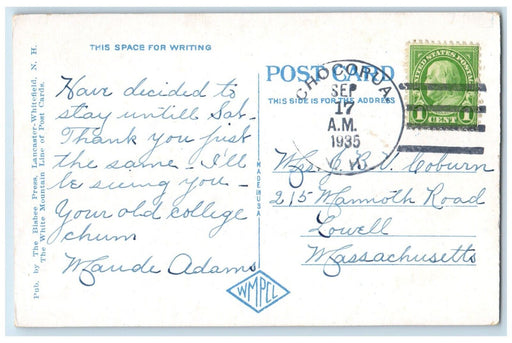 THIS SPACE FOR WRITING
Have decided to
stay untill Sat-
Thank you just
the same - I'll
be seeing you -
Your old college
chum
Maude Adams
Pub. by The Bisbee Press, Lancaster-Whitefield, N. H.
The White Mountain Line of Post Cards.
MADE USA
WMPCL
POST CARD
THIS SIDE IS FOR THE ADDRESS
CHOCORUA
SEP
17
A.M.
1935
N.H.
UNITED STATES POSTAGE
1 CENT 1
Coburn
215 Mammoth Road
Lowell
Massachusetts